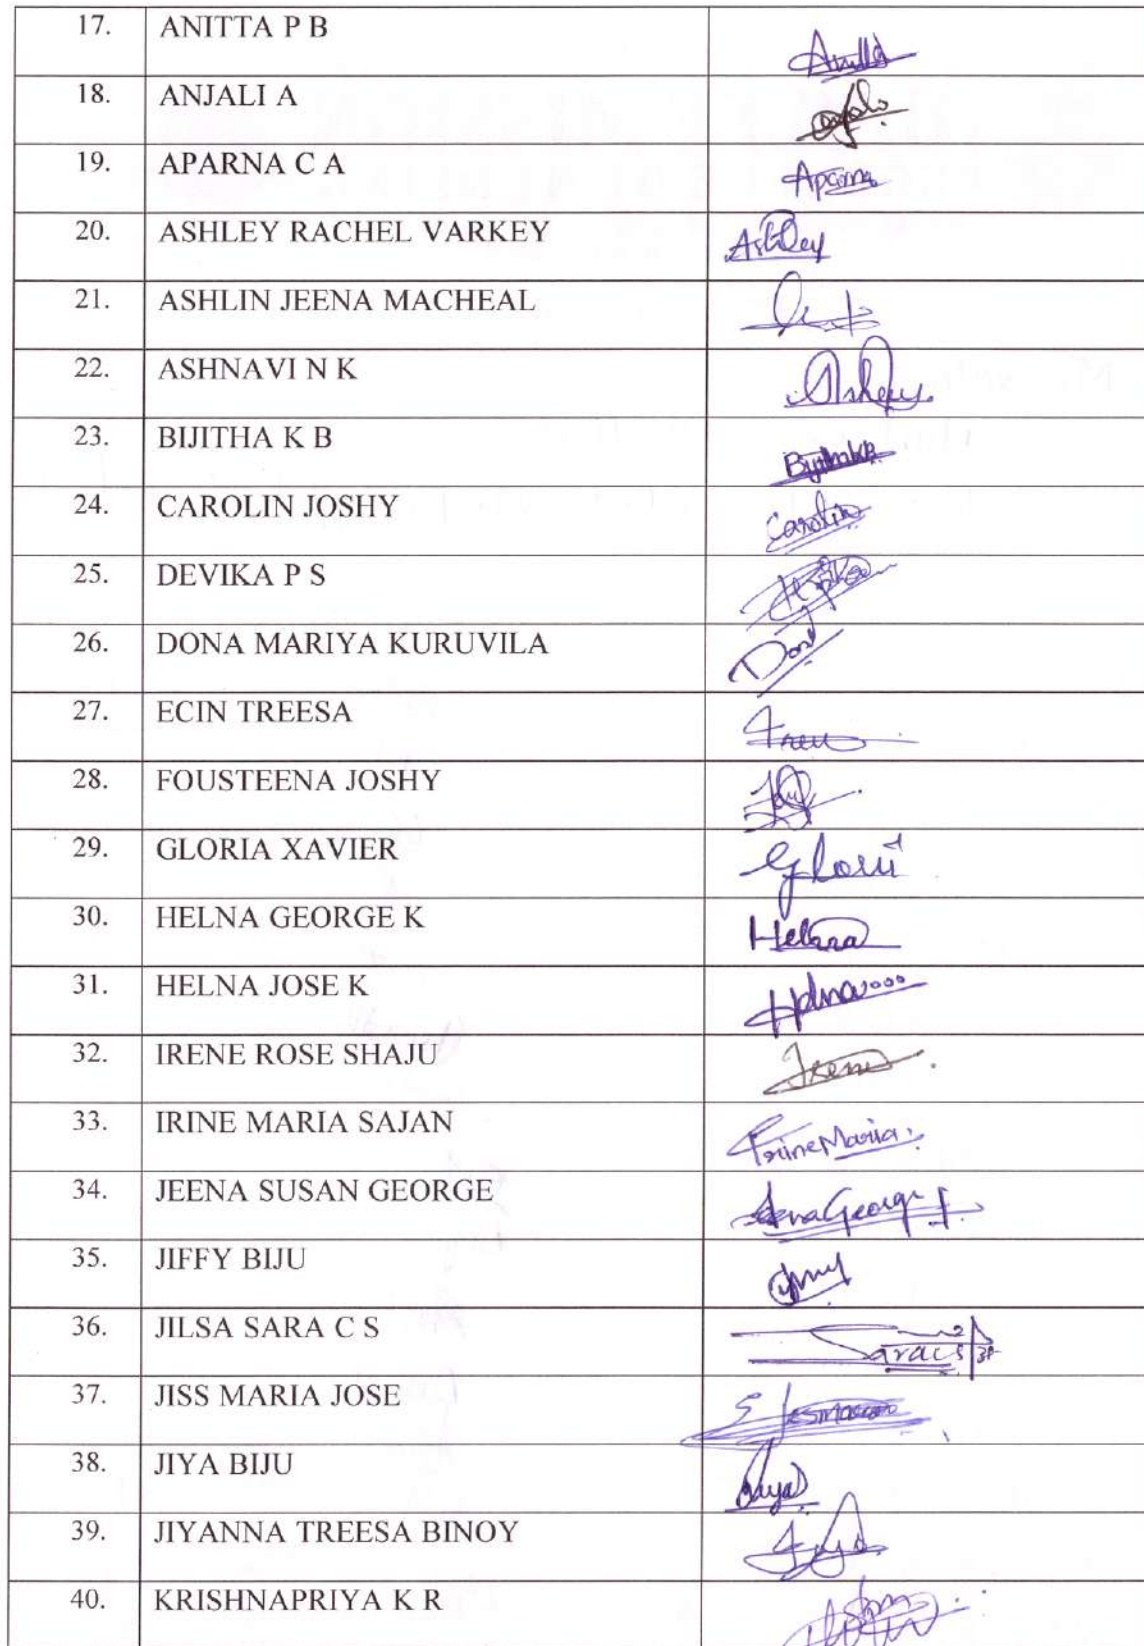 17. ANITTA P B Anitta
18. ANJALI A Anjali
19. APARNA C A Aparna
20. ASHLEY RACHEL VARKEY Ashley
21. ASHLIN JEENA MACHEAL
22. ASHNAVI N K
23. BIJITHA K B
24. CAROLIN JOSHY Carolin
25. DEVIKA P S
26. DONA MARIYA KURUVILA
27. ECIN TREESA
28. FOUSTEENA JOSHY
29. GLORIA XAVIER
30. HELNA GEORGE K Helna
31. HELNA JOSE K Helna
32. IRENE ROSE SHAJU Irene
33. IRINE MARIA SAJAN Irine Maria
34. JEENA SUSAN GEORGE
35. JIFFY BIJU
36. JILSA SARA C S
37. JISS MARIA JOSE
38. JIYA BIJU
39. JIYANNA TREESA BINOY
40. KRISHNAPRIYA K R